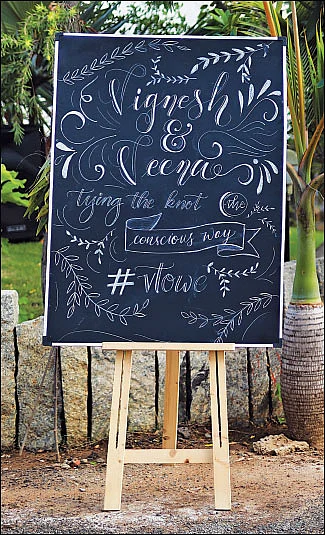 Vignesh
&
Veena
tying the knot the
conscious way
#vtowe